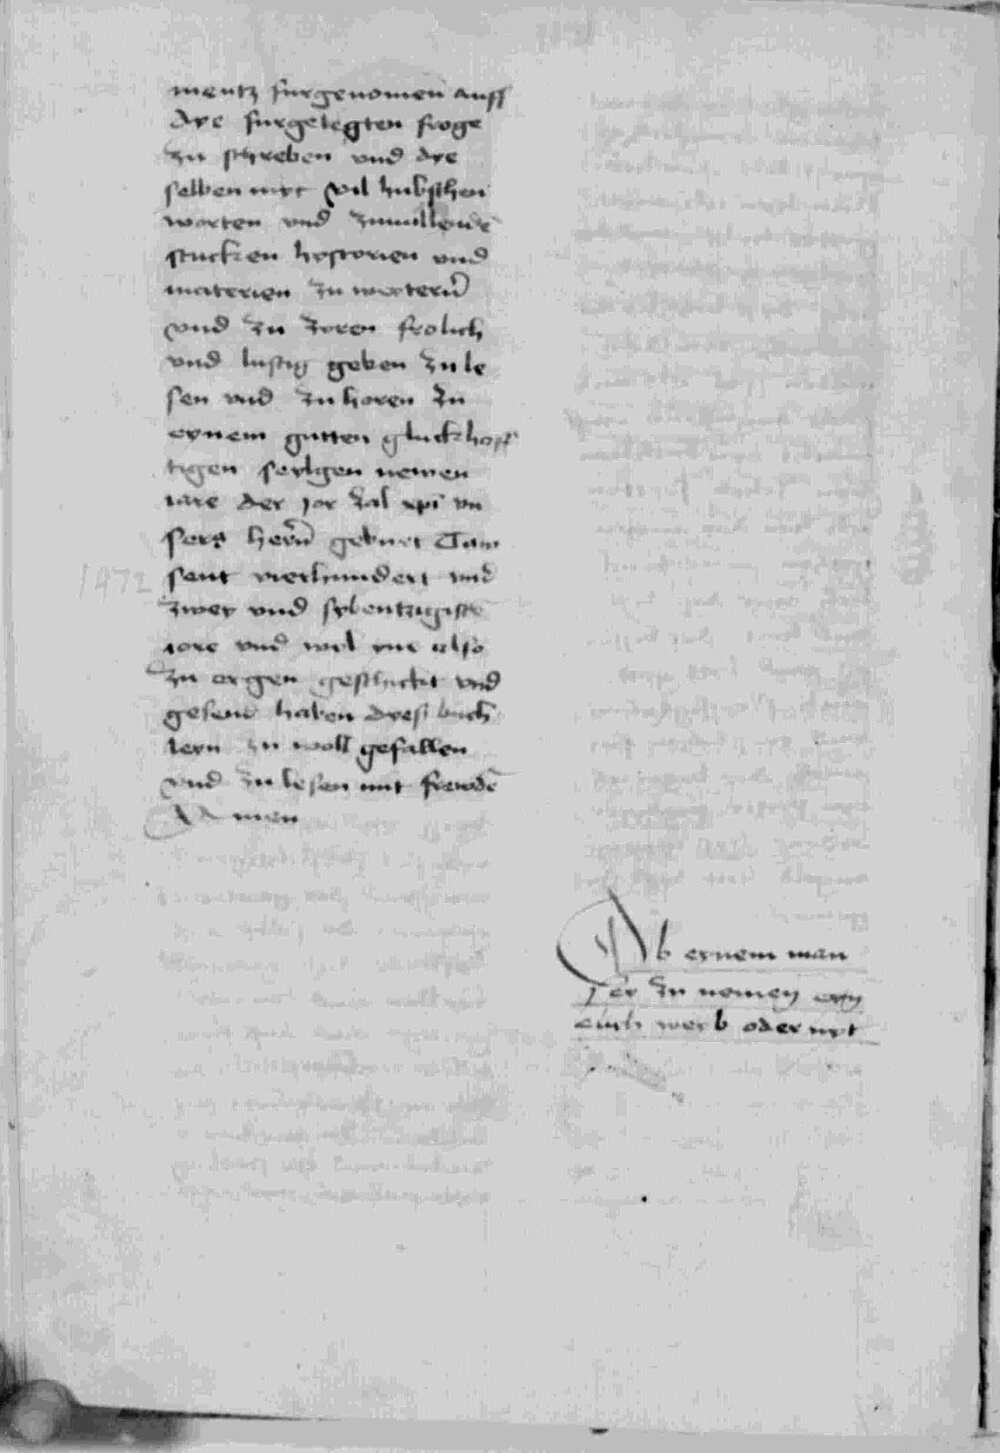 mentz furgenomen auff
dye furgelegten froge
zu schreben vnd dye
selben myt vil hubschen
worten vnd zuuallende
stucken hystorien vnd
materien zu weytern
vnd zu zyren frolich
vnd lustig geben zu le
sen vnd zu horen zu
eynem gutten gluckhaff
tigen seylgen newen
iare der jor zal xpi vn
sers hern geburt Taw
sent vierhundert vnd
1472
zwey vnd sybentzigiste
iore vnd wil me also
zu eygen geschickt vnd
gesend haben dyesz buch
lern zu woll gefallen
vnd zu lesen mit frewde
Amen
Ob eynem man
sey zu nemen eyn
elich weyb oder nyt